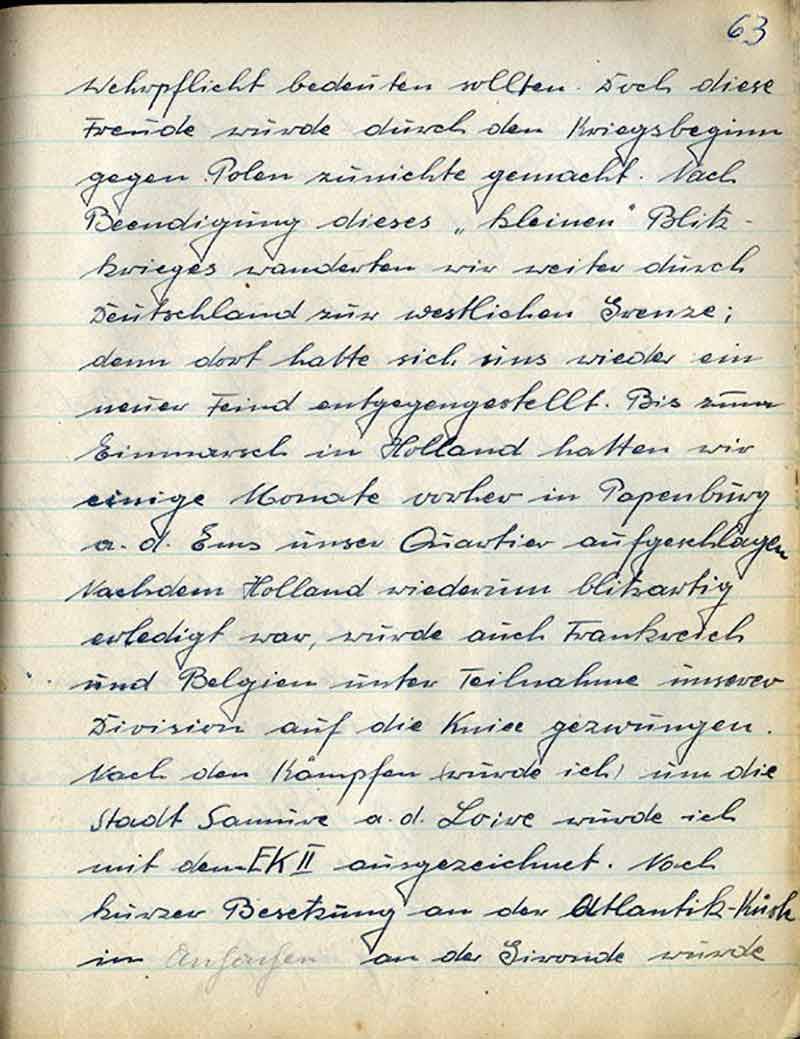 63
Wehrpflicht bedeuten sollten. Doch diese
Freude wurde durch den Kriegsbeginn
gegen Polen zunichte gemacht. Nach
Beendigung dieses „kleinen" Blitz-
krieges wanderten wir weiter durch
Deutschland zur westlichen Grenze;
denn dort hatte sich uns wieder ein
neuer Feind entgegengestellt. Bis zum
Einmarsch in Holland hatten wir
einige Monate vorher in Papenburg
a. d. Ems unser Quartier aufgeschlagen
Nachdem Holland wiederum blitzartig
erledigt war, wurde auch Frankreich
und Belgien unter Teilnahme unserer
Division auf die Kniee gezwungen.
Nach den Kämpfen (wurde ich) um die
Stadt Samure a. d. Loire wurde ich
mit dem EK II ausgezeichnet. Nach
kurzer Besetzung an der Atlantik-Küste
in an der Gironde wurde